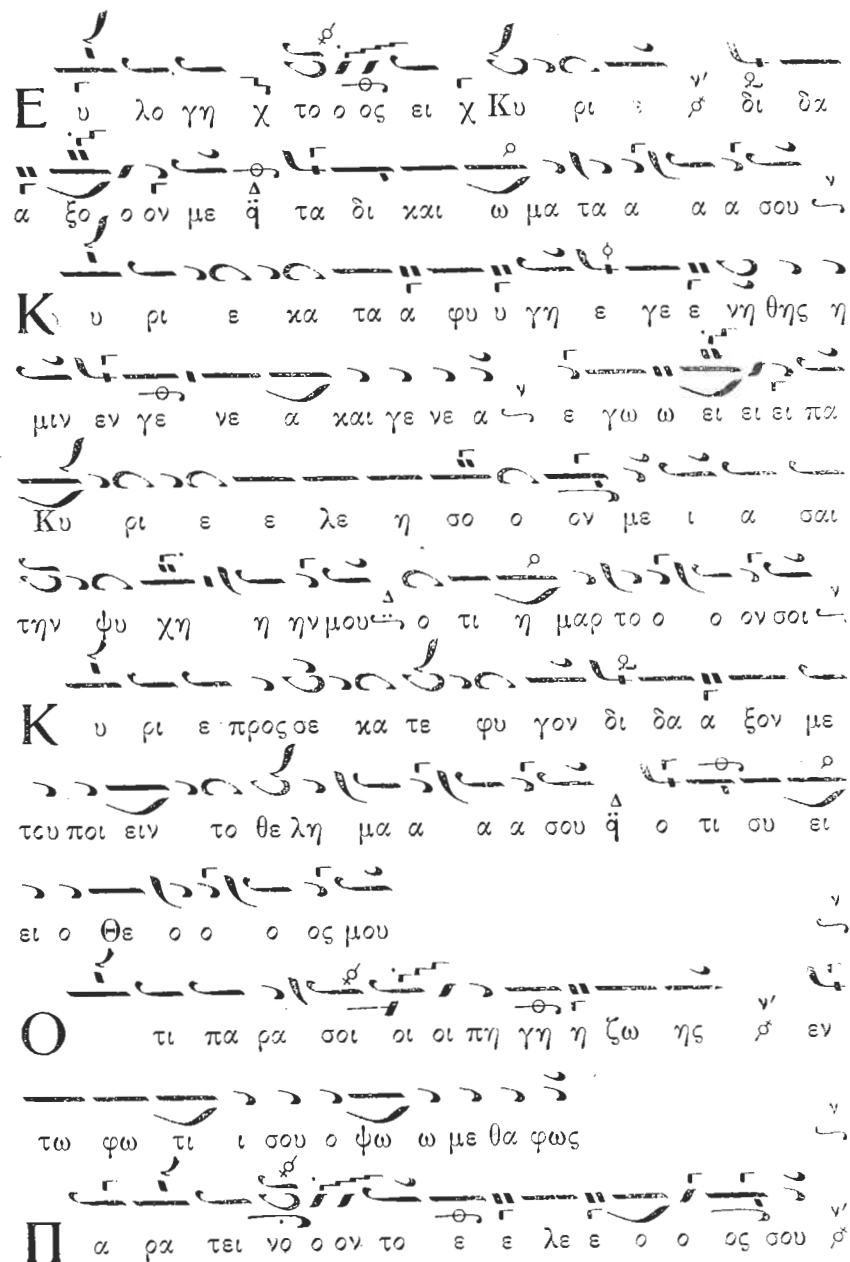 Ε υ λο γη χ το ο ος ει χ Κυ ρι ε ν' δι δα
α ξο ο ον με Δ q̈ τα δι και ω μα τα α α α σου ν
Κ υ ρι ε κα τα α φυ υ γη ε γε ε νη θης η
μιν εν γε νε α και γε νε α ν ε γω ω ει ει ει πα
Κυ ρι ε ε λε η σο ο ον με ι α σαι
την ψυ χη η ην μου Δ ο τι η μαρ το ο ο ον σοι ν
Κ υ ρι ε προς σε κα τε φυ γον δι δα α ξον με
του ποι ειν το θε λη μα α α α σου Δ q̈ ο τι συ ει
ει ο Θε ο ο ο ος μου ν
Ο τι πα ρα σοι οι οι πη γη η ζω ης ν' εν
τω φω τι ι σου ο ψω ω με θα φως ν
Π α ρα τει νο ο ον το ε ε λε ε ο ο ος σου ν'